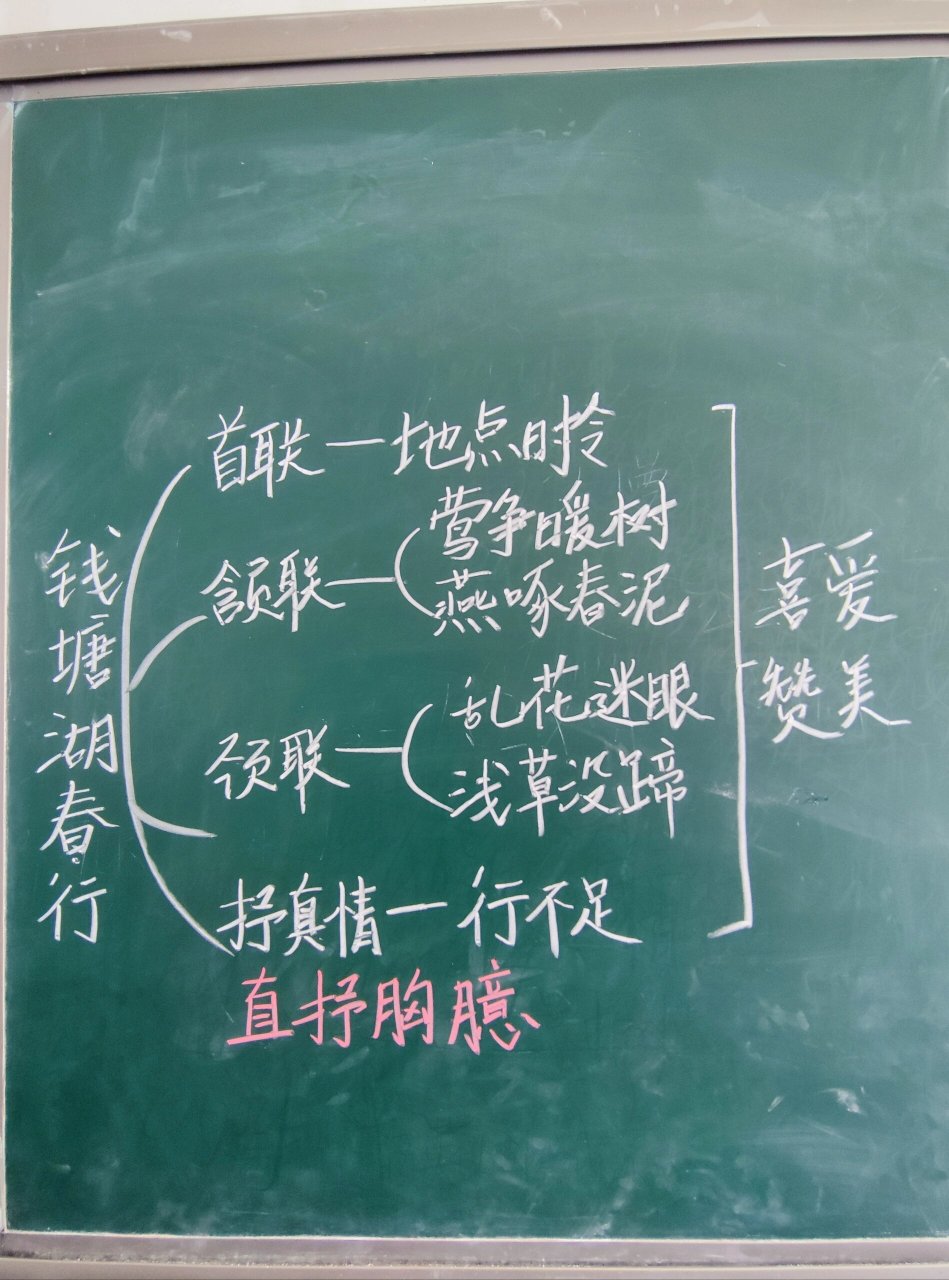 钱塘湖春行
首联一地点时令
颔联一
莺争暖树
燕啄春泥
颈联一
乱花迷眼
浅草没蹄
抒真情一行不足
直抒胸臆
喜爱
赞美